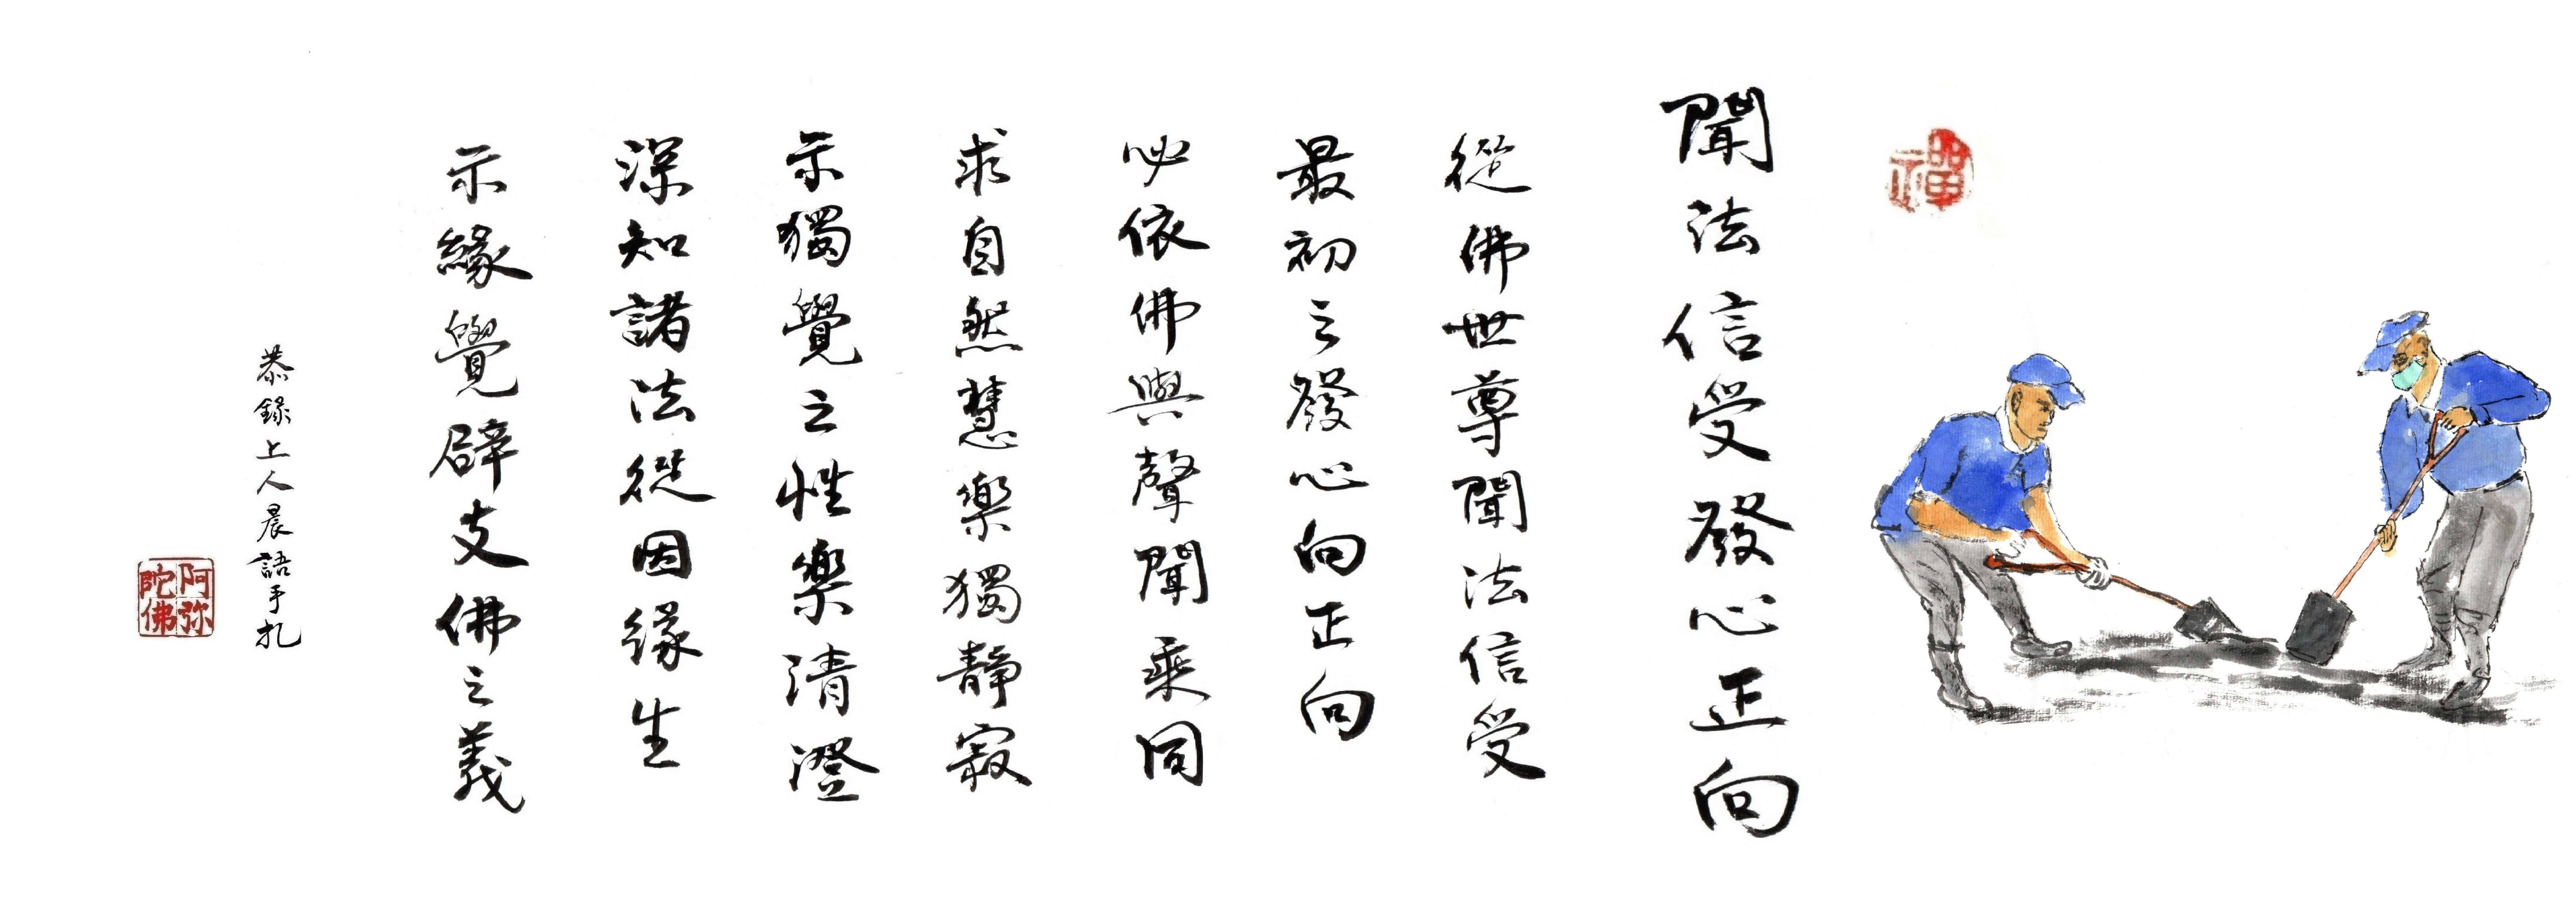 禪
聞法信受發心正向
從佛世尊聞法信受
最初之發心向正向
必依佛與聲聞乘同
求自然慧樂獨靜寂
示獨覺之性樂清澄
深知諸法從因緣生
示緣覺辟支佛之義
恭錄上人晨語手札
阿弥
陀佛